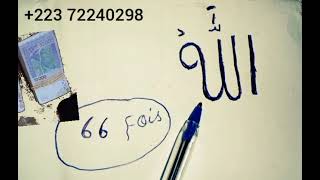 +223 72240298
اللَّهُ
66 fois